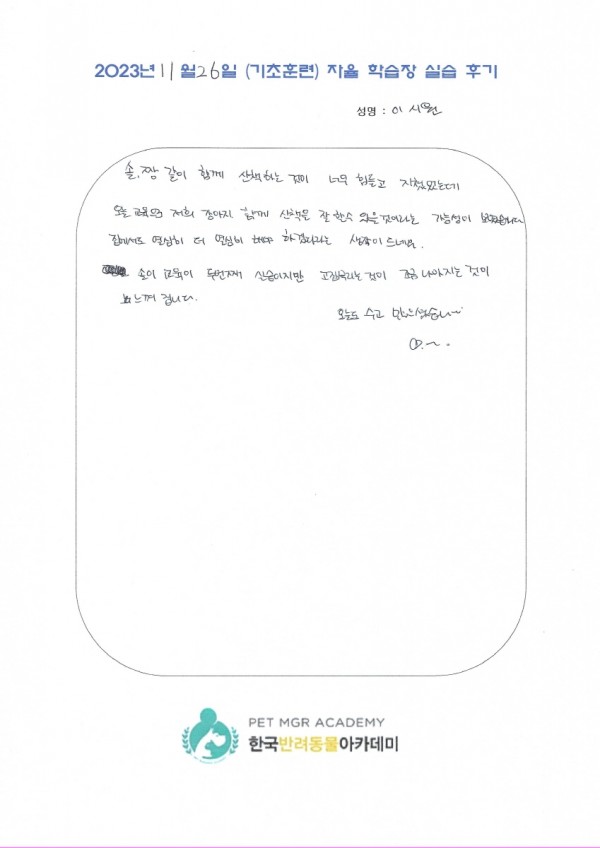 2023년 11월 26일 (기초훈련) 자율 학습장 실습 후기
성명 : 이 시원
솔, 짬 같이 함께 산책하는 것이 너무 힘들고 지쳤었는데
오늘 교육으로 저희 강아지 함께 산책을 잘 할 수 있을 것이라는 가능성이 보였습니다
집에서도 열심히 더 열심히 해야 하겠다라는 생각이 드네요.
솔이 교육이 두번째 실습이지만 조금 나아지는 것이
느껴 집니다.
오늘도 수고 많으셨습니다~
PET MGR ACADEMY
한국반려동물아카데미